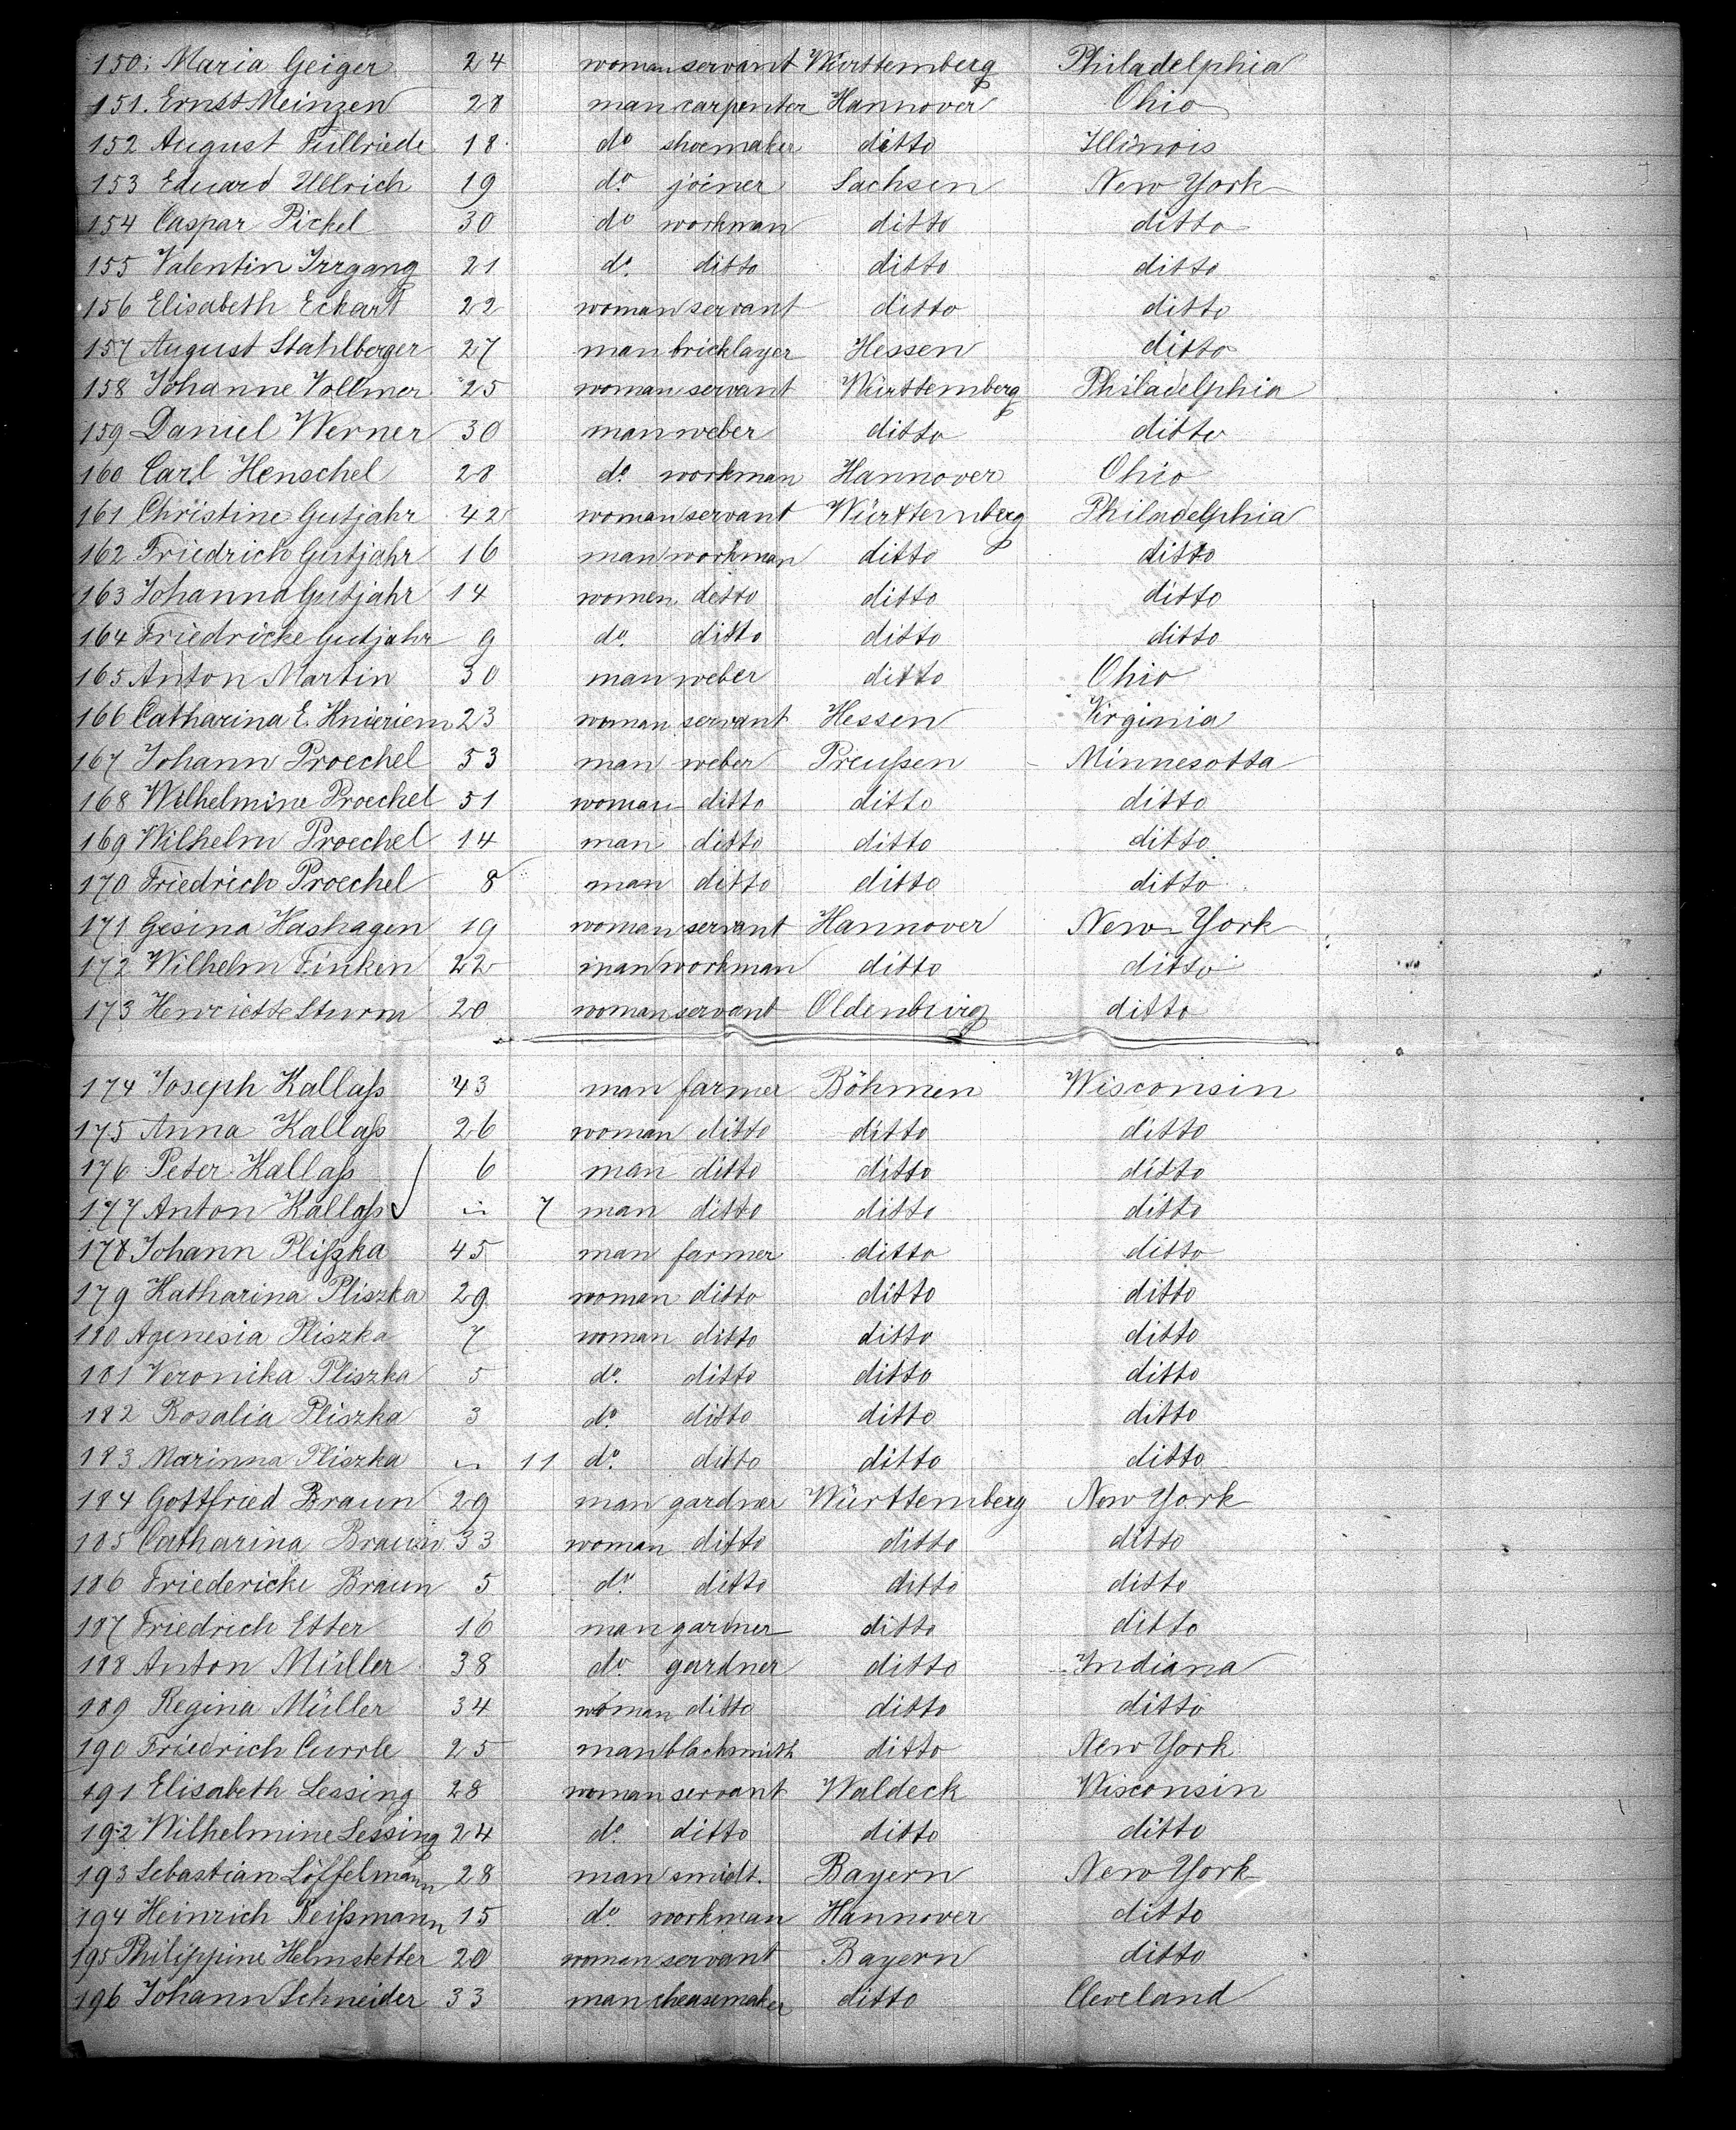 150. Maria Geiger 24 woman servant Württemberg Philadelphia
151. Ernst Meinzen 28 man carpenter Hannover Ohio
152 August Füllriede 18 do shoemaker ditto Illinois
153 Eduard Ullrich 19 do. joiner Sachsen New York
154 Caspar Pickel 30 do workman ditto ditto
155 Valentin Irrgang 21 do. ditto ditto ditto
156 Elisabeth Eckart 22 woman servant ditto ditto
157 August Stahlberger 27 man bricklayer Hessen ditto
158 Johanne Vollmer 25 woman servant Württemberg Philadelphia
159 Daniel Werner 30 man weber ditto ditto
160 Carl Henschel 28 do. workman Hannover Ohio
161 Christine Gutjahr 42 woman servant Württemberg Philadelphia
162 Friedrich Gutjahr 16 man workman ditto ditto
163 Johanna Gutjahr 14 women ditto ditto ditto
164 Friedricke Gutjahr 9 do. ditto ditto ditto
165 Anton Martin 30 man weber ditto Ohio
166 Catharina E. Knieriem 23 woman servant Hessen Virginia
167 Johann Proechel 53 man weber Preußen Minnesotta
168 Wilhelmine Proechel 51 woman ditto ditto ditto
169 Wilhelm Proechel 14 man ditto ditto ditto
170 Friedrich Proechel 8 man ditto ditto ditto
171 Gesina Hashagen 19 woman servant Hannover New York
172 Wilhelm Finken 22 man workman ditto ditto
173 Henriette Sturm 20 woman servant Oldenburg ditto
174 Joseph Kallaß 43 man farmer Böhmen Wisconsin
175 Anna Kallaß 26 woman ditto ditto ditto
176 Peter Kallaß 6 man ditto ditto ditto
177 Anton Kallaß 7 man ditto ditto ditto
178 Johann Pliszka 45 man farmer ditto ditto
179 Katharina Pliszka 29 woman ditto ditto ditto
180 Agenesia Pliszka 7 woman ditto ditto ditto
181 Veronika Pliszka 5 do. ditto ditto ditto
182 Rosalia Pliszka 3 do. ditto ditto ditto
183 Marinna Pliszka 11 do. ditto ditto ditto
184 Gottfried Braun 29 man gardner Württemberg New York
185 Catharina Braun 33 woman ditto ditto ditto
186 Friedericke Braun 5 do. ditto ditto ditto
187 Friedrich Etter 16 man gardner ditto ditto
188 Anton Müller 38 do. gardner ditto Indiana
189 Regina Müller 34 woman ditto ditto ditto
190 Friedrich Currle 25 man blacksmith ditto New York
191 Elisabeth Lessing 28 woman servant Waldeck Wisconsin
192 Wilhelmine Lessing 24 do. ditto ditto ditto
193 Sebastian Löffelmann 28 man smidt. Bayern New York
194 Heinrich Reißmann 15 do. workman Hannover ditto
195 Philippine Helmstetter 20 woman servant Bayern ditto
196 Johann Schneider 33 man cheasemaker ditto Cleveland